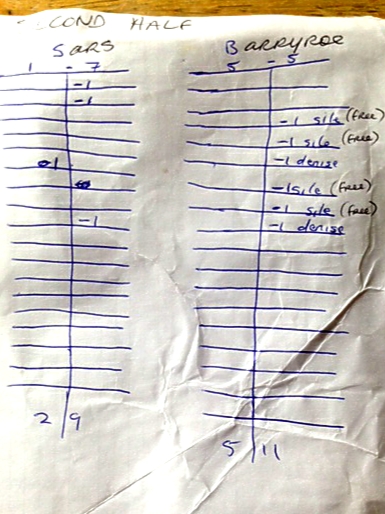 COND HALF
SARS
1 - 7
-1
-1
1
-1
2 9
BARRYROE
5 - 5
-1 sile (free)
-1 sile (free)
-1 denise
-1 sile (free)
-1 sile (free)
-1 denise
5 11